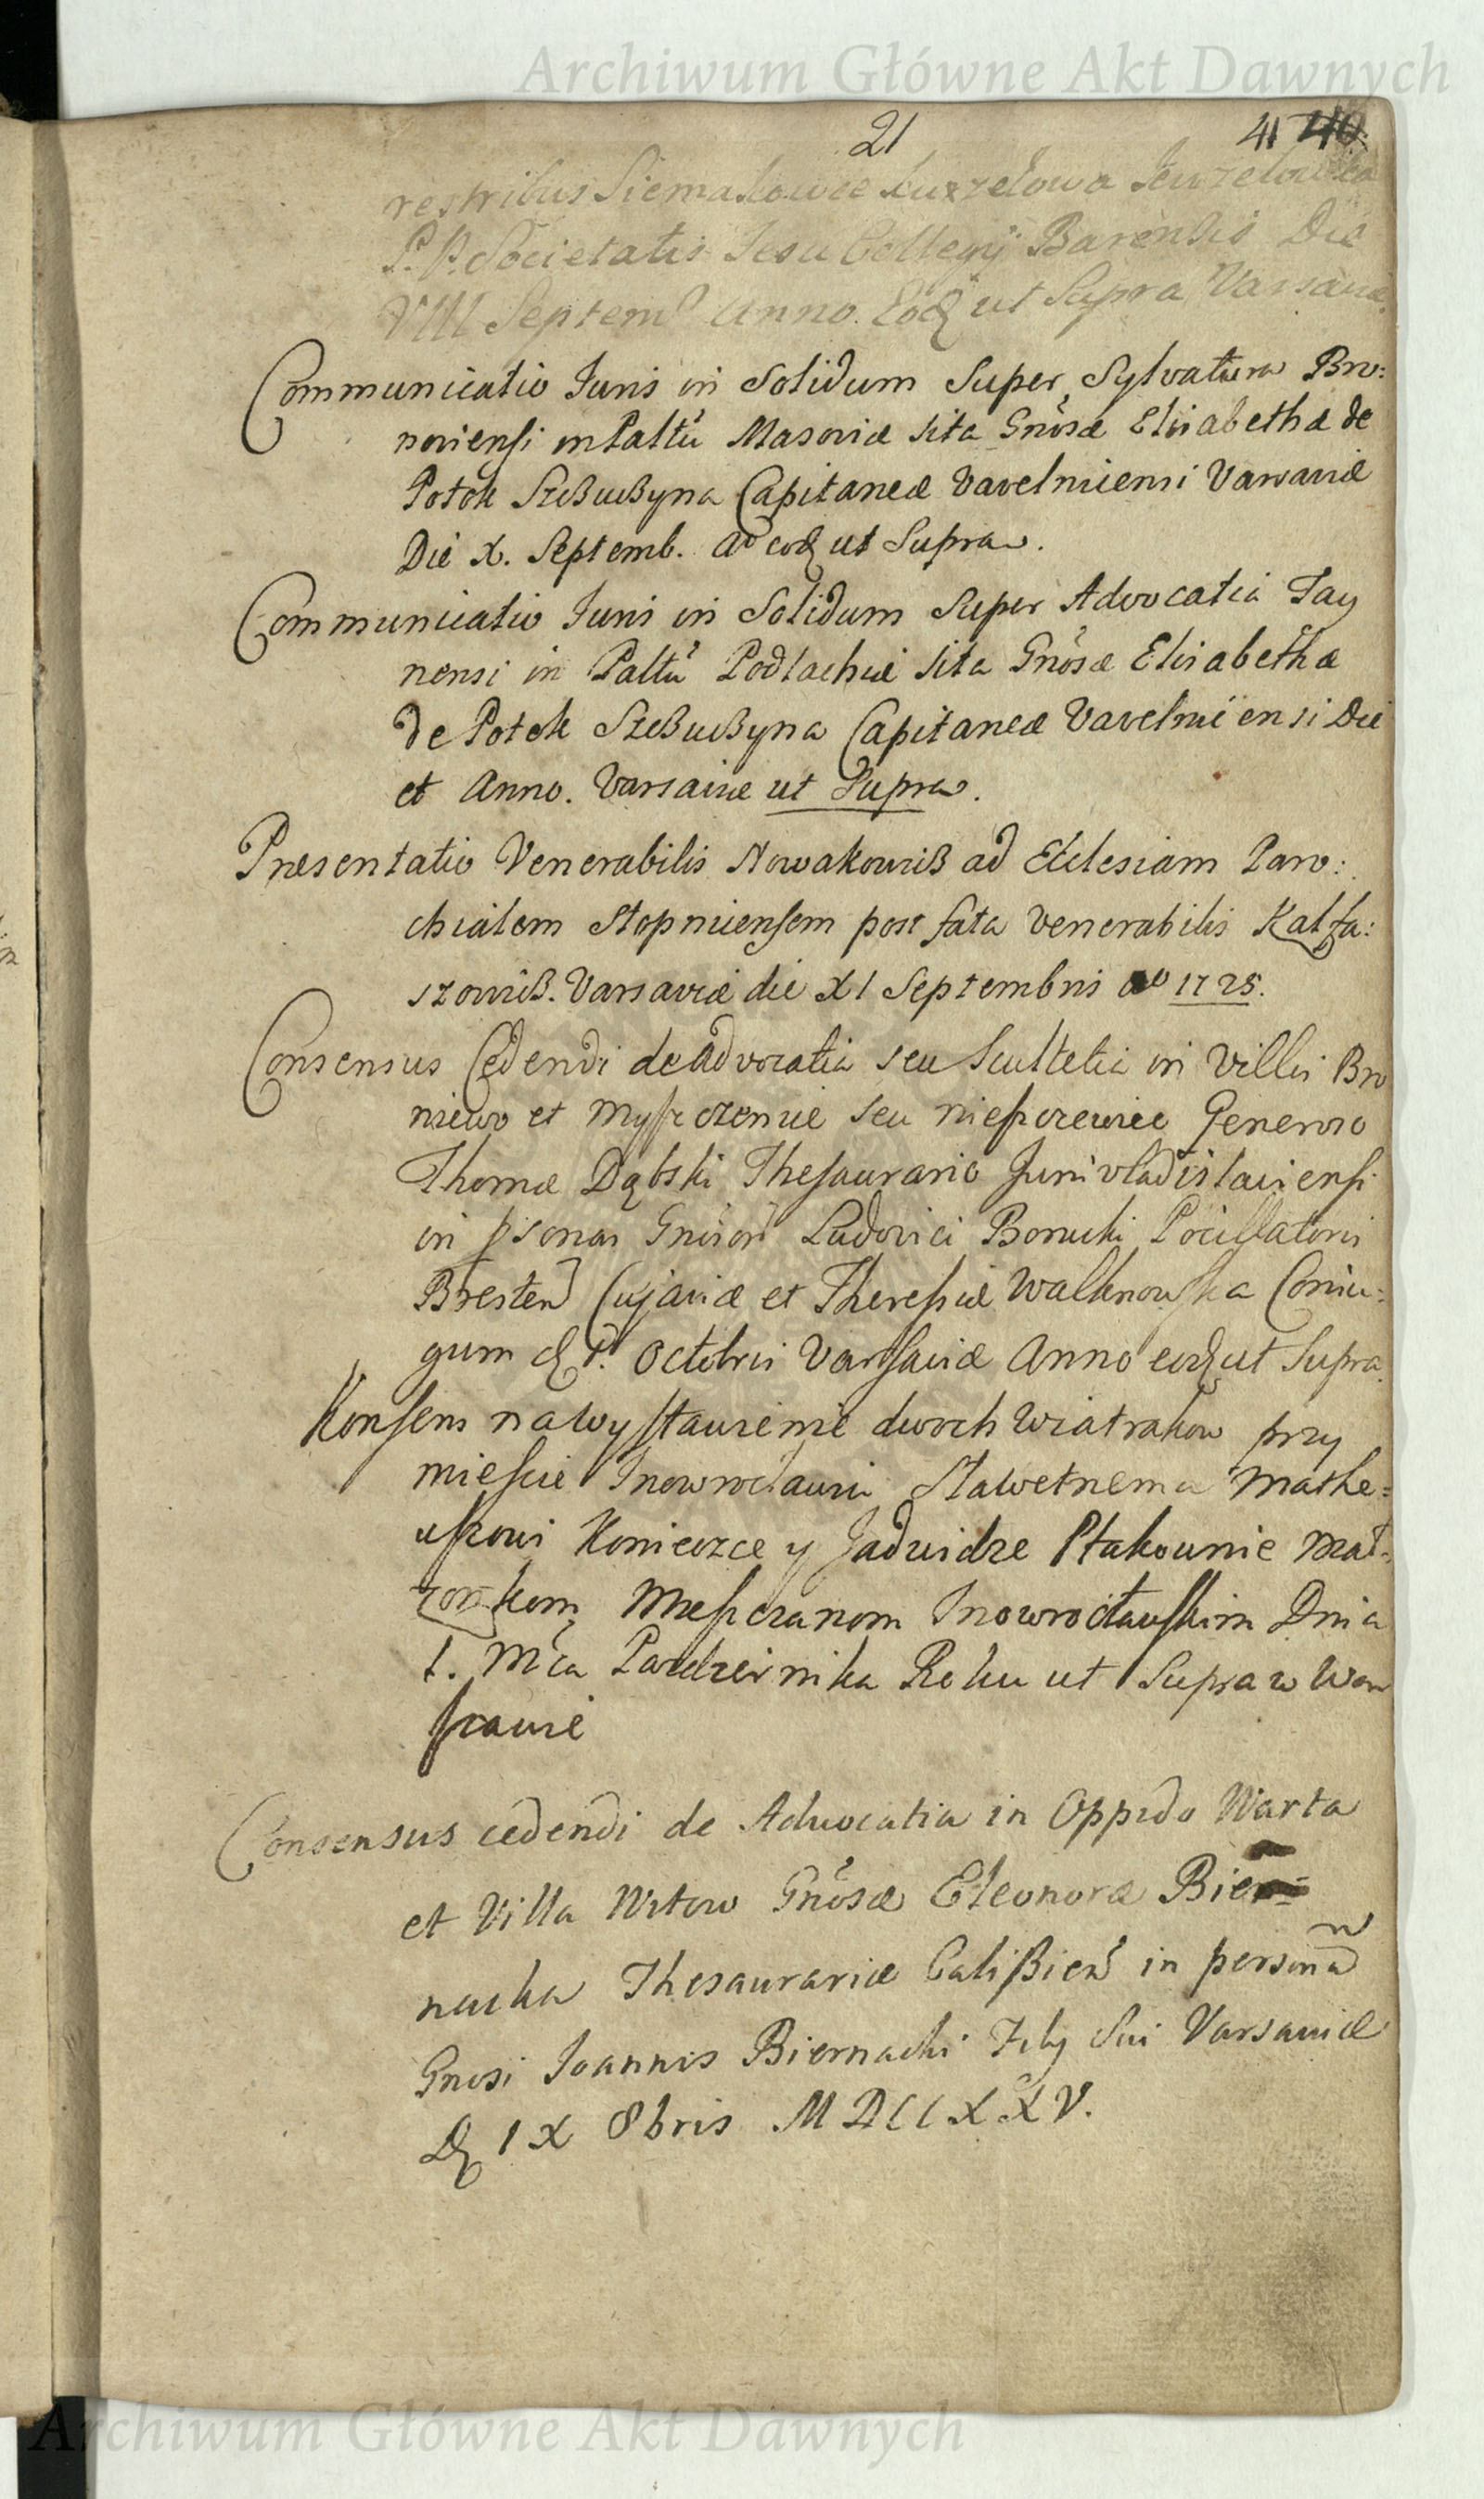 Archiwum Główne Akt Dawnych
21 41 40
restribus Siemakowce
P. P. Societatis Iesu Collegij Barensis Die
VIII Septem Anno. Eod ut Supra Varsaviæ
Communicatio Iuris in Solidum Super Sylvatura Bro:
noviensi in Paltu Masoviæ sita Gnosæ Elisabethæ de
Potok Szczuczyna Capitaneæ Vavelnicensi Varsaviæ
Die X. Septemb. Ao eod ut Supra.
Communicatio Iuris in Solidum Super Advocatia Tay
nensi in Paltu Podlachiæ sita Gnosæ Elisabethæ
de Potok Szczuczyna Capitaneæ Vavelnicensi Die
et Anno. Varsaviæ ut Supra.
Præsentatio Venerabilis Nowakowicz ad Ecclesiam Paro:
chialem Stopniciensem post fata Venerabilis Kalfa:
szowicz. Varsaviæ die XI Septembris Ao 1725.
Consensus Cedendi de Advocatia seu Scultetia in Villis Bro
niewo et seu Generoso
Thomæ Dąbski Thesaurario Junivladislaviensi
in psonas Gnosor Ludovici Bonucki Pocillatoris
Bresten Cujaviæ et Theresiæ Walknowska Coniu:
gum d 1. Octobris Varsaviæ Anno eod ut Supra.
Konsens na wystawienie dwoch Wiatrakow przy
miescie Inowroclawiu Slawetnemu Mathe=
uszowi Konieczce y Jadwidze Ptakownie Mał=
żonkom Mieszczanom Inowrocławskim Dnia
1. Mca Pazdziernika Roku ut Supra w War
szawie
Consensus cedendi de Advocatia in Oppido Warta
et Villa Witow Gnosæ Eleonoræ Bier=
nacka Thesaurariæ Calissien in personam
Gnosi Joannis Biernacki Filij Sui Varsaviæ
D IX 8bris MDCCXXV.
Archiwum Główne Akt Dawnych